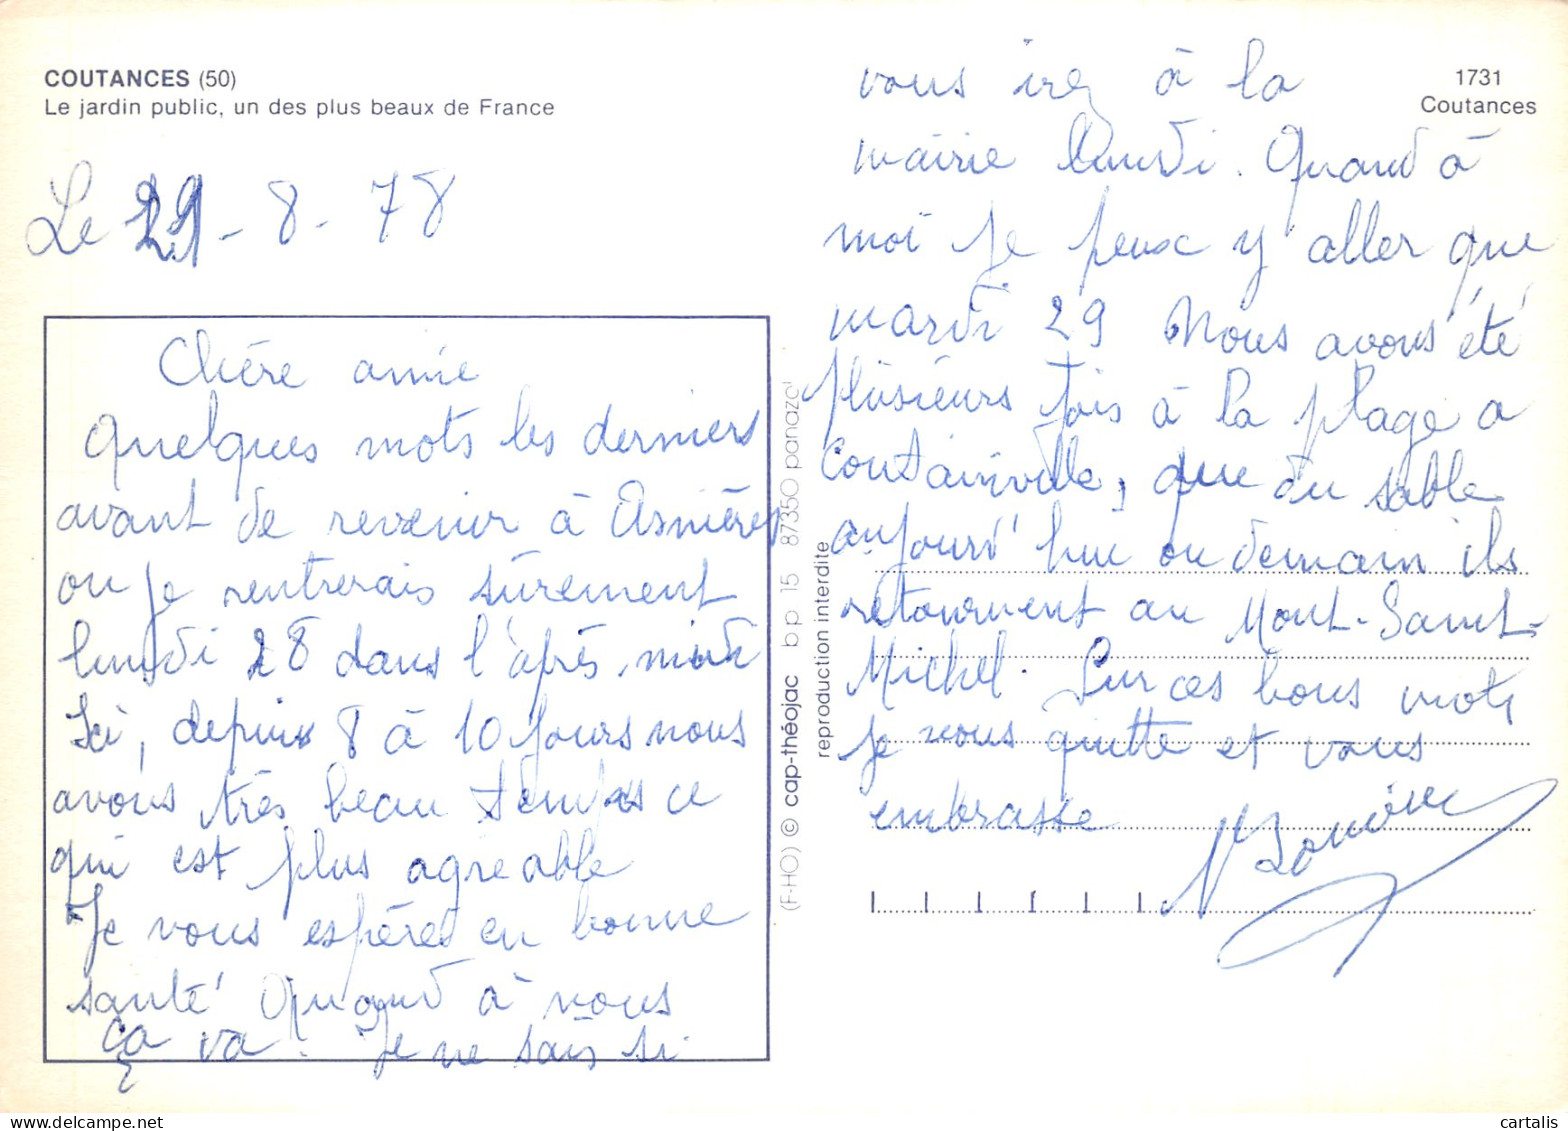 COUTANCES (50)
Le jardin public, un des plus beaux de France
Le 21 - 8 - 78
Chére amie
Quelques mots les derniers
avant de revenir à Asnières
ou je rentrerais sûrement
lundi 28 dans l'après midi
Ici, depuis 8 à 10 jours nous
avons très beau temps ce
qui est plus agréable
Je vous espéres en bonne
santé Quand à nous
ça va. Je ne sais si
(F-HO) © cap-théojac bp 15 87350 panazol
reproduction interdite
1731
Coutances
vous irez à la
mairie lundi. Quand à
moi je peux y aller que
mardi 29 Nous avons été
plusieurs fois à la plage a
Coutainville, que du sable
aujourd'hui ou demain ils
retournent au Mont-Saint-
Michel. Sur ces bons mots
je vous quitte et vous
embrasse